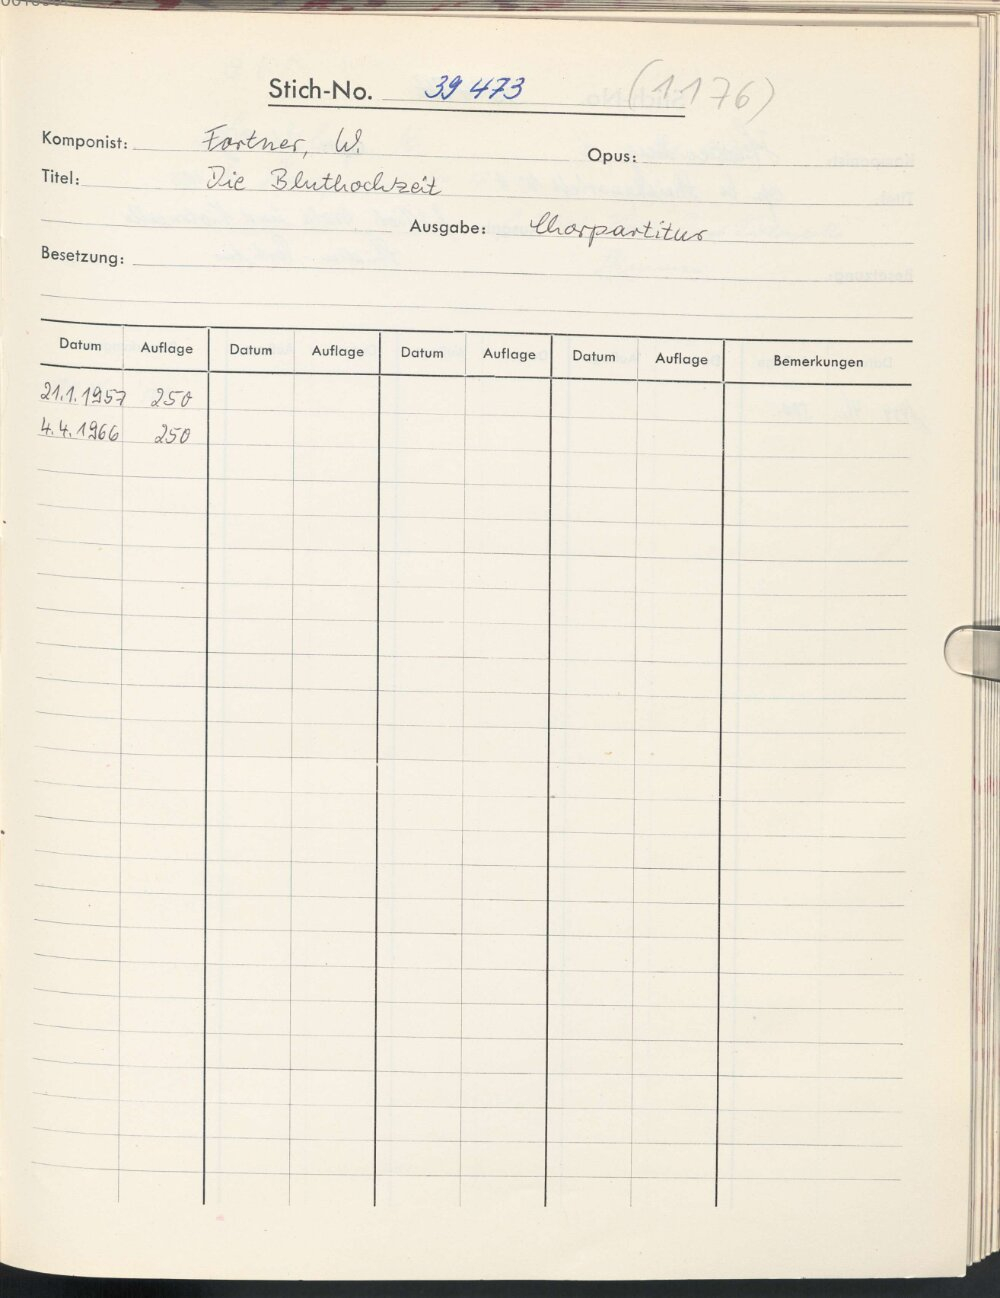 Stich-No. 39 473 (1176)
Komponist: Fortner, W.
Opus:
Titel: Die Bluthochzeit
Ausgabe: Chorpartitur
Besetzung:
Datum Auflage Datum Auflage Datum Auflage Datum Auflage Bemerkungen
21.1.1957 250
4.4.1966 250